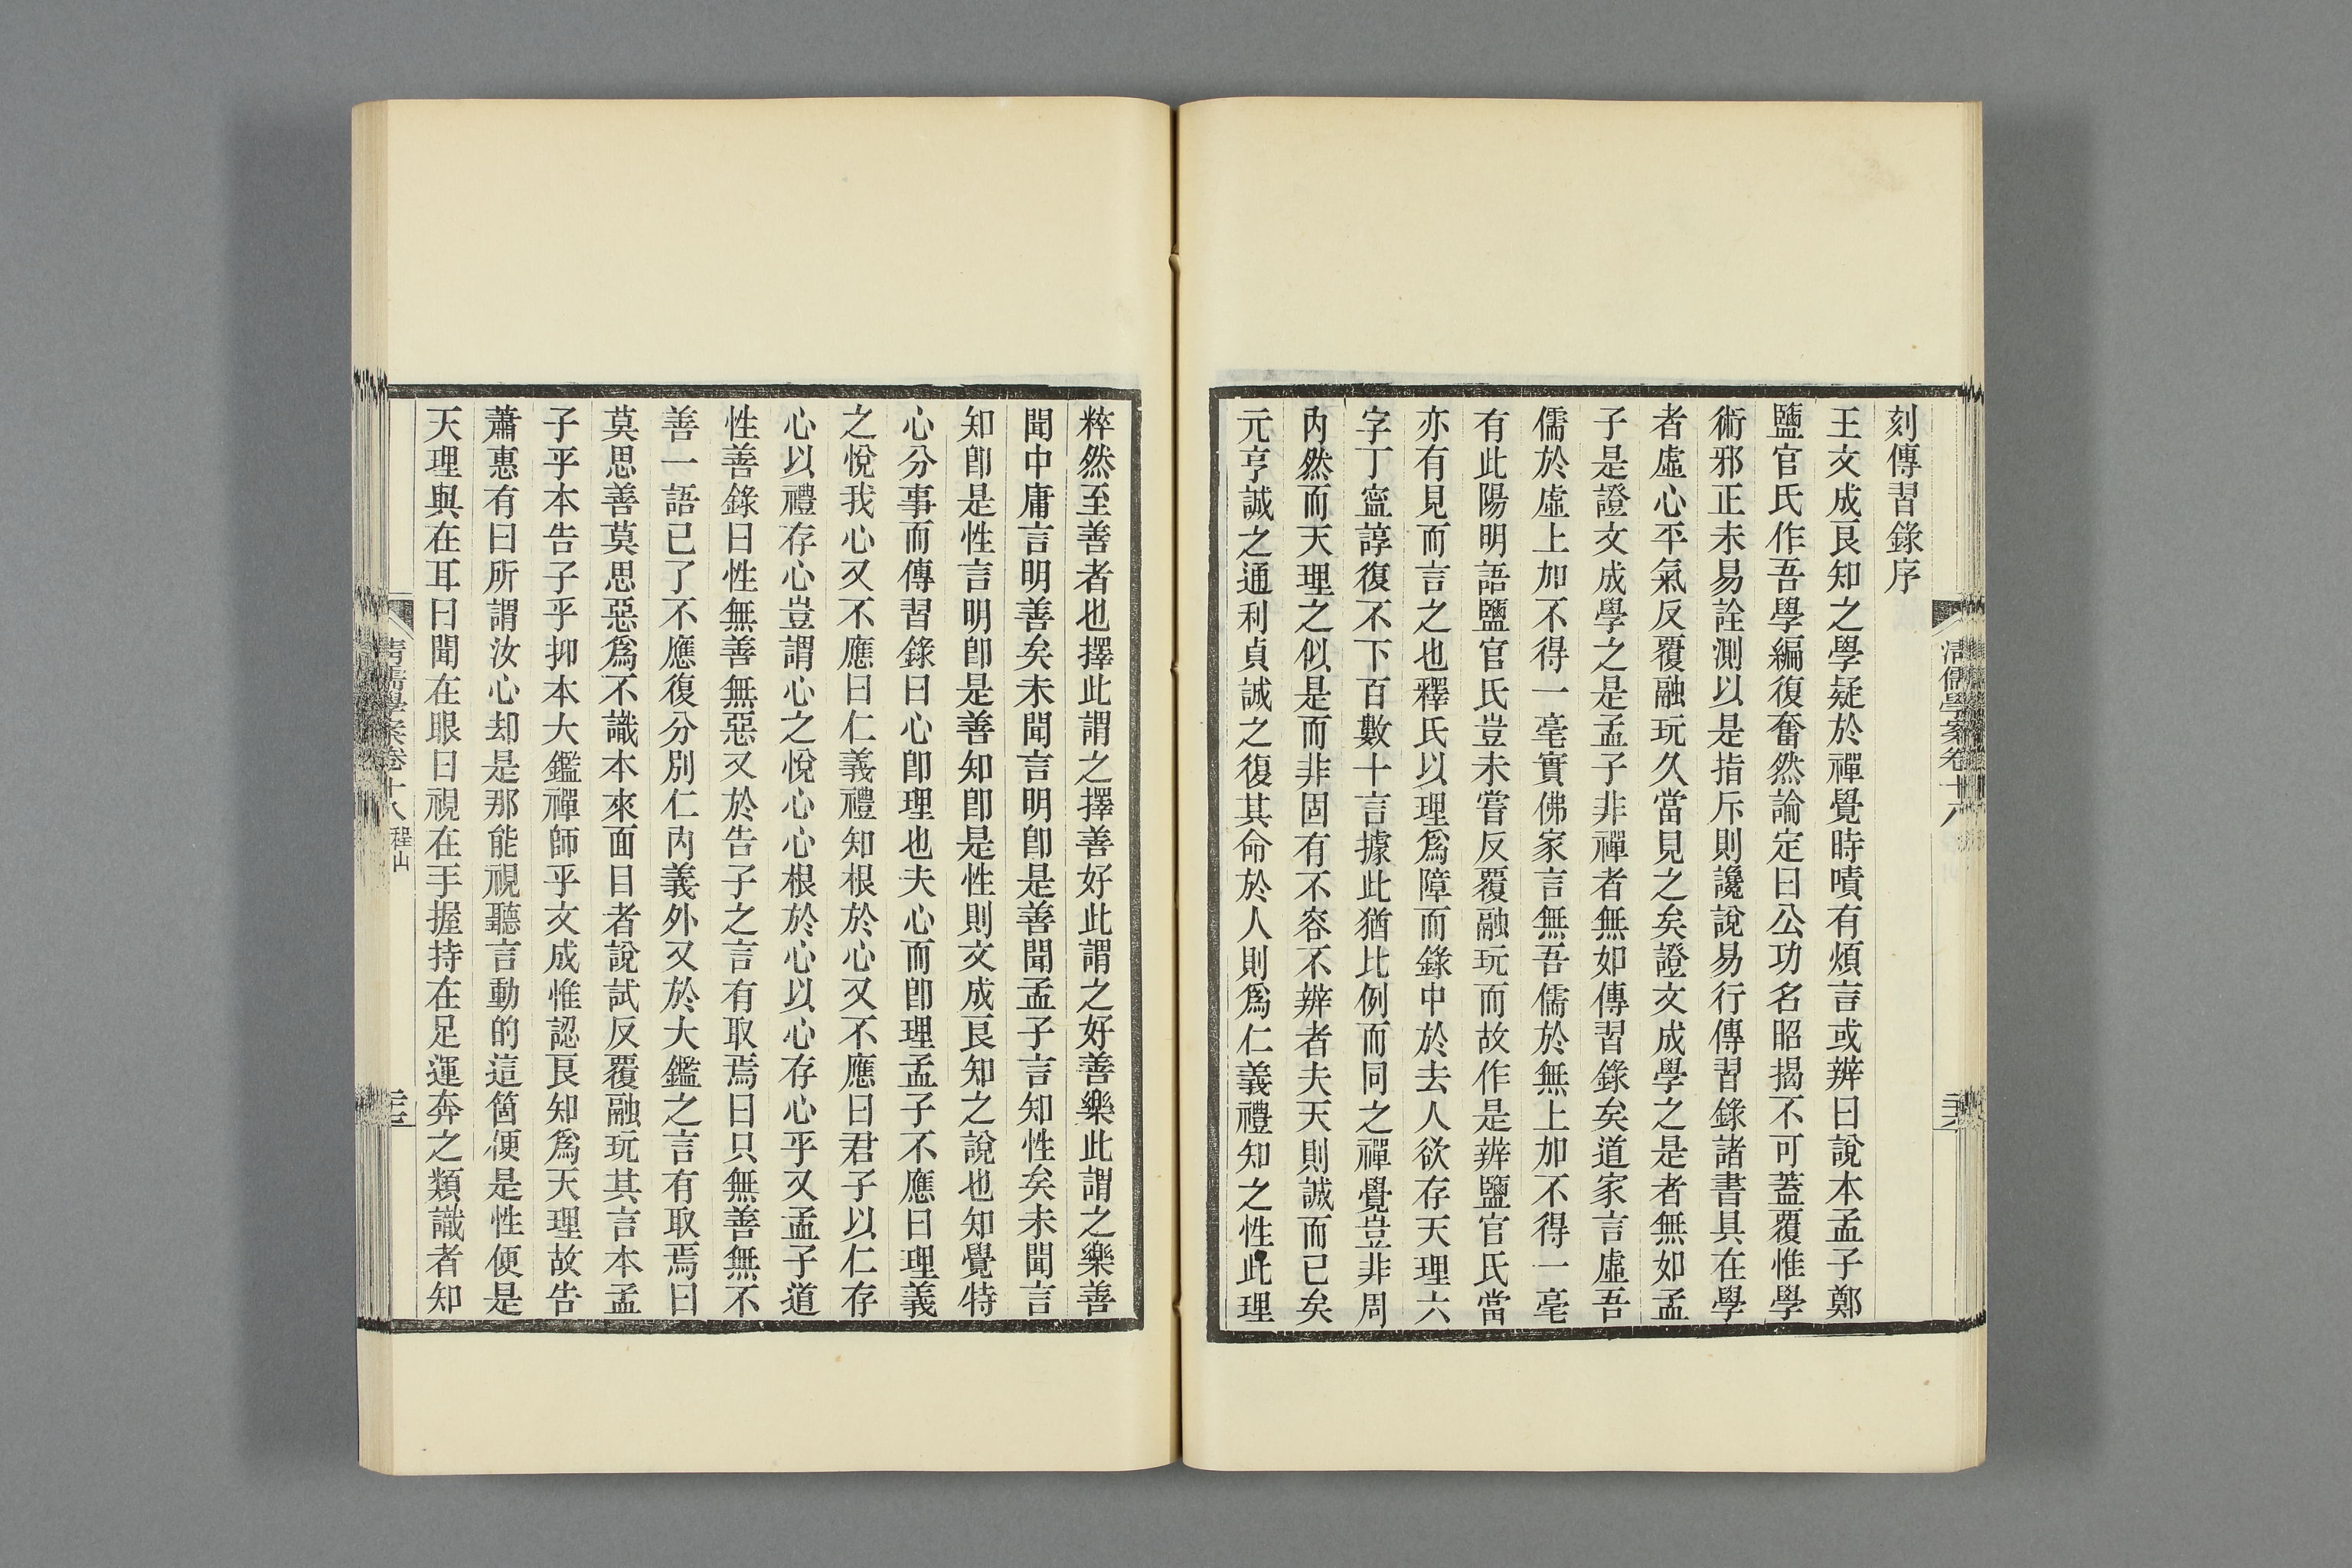 刻傳習錄序
王文成良知之學疑於禪覺時嘖有煩言或辨曰說本孟子鄭
鹽官氏作吾學編復奮然論定曰公功名昭揭不可蓋覆惟學
術邪正未易詮測以是指斥則讒說易行傳習錄諸書具在學
者虛心平氣反覆融玩久當見之矣證文成學之是者無如孟
子是證文成學之是孟子非禪者無如傳習錄矣道家言虛吾
儒於虛上加不得一毫實佛家言無吾儒於無上加不得一毫
有此陽明語鹽官氏豈未嘗反覆融玩而故作是辨鹽官氏當
亦有見而言之也釋氏以理爲障而錄中於去人欲存天理六
字丁寍諄復不下百數十言據此猶比例而同之禪覺豈非周
內然而天理之似是而非固有不容不辨者夫天則誠而已矣
元亨誠之通利貞誠之復其命於人則爲仁義禮知之性此理
清儒學案卷十八
粹然至善者也擇此謂之擇善好此謂之好善樂此謂之樂善
聞中庸言明善矣未聞言明卽是善聞孟子言知性矣未聞言
知卽是性言明卽是善知卽是性則文成良知之說也知覺特
心分事而傳習錄曰心卽理也夫心而卽理孟子不應曰理義
之悅我心又不應曰仁義禮知根於心又不應曰君子以仁存
心以禮存心豈謂心之悅心心根於心以心存心乎又孟子道
性善錄曰性無善無惡又於告子之言有取焉曰只無善無不
善一語已了不應復分別仁內義外又於大鑑之言有取焉曰
莫思善莫思惡爲不識本來面目者說試反覆融玩其言本孟
子乎本告子乎抑本大鑑禪師乎文成惟認良知爲天理故告
蕭惠有曰所謂汝心却是那能視聽言動的這箇便是性便是
天理與在耳曰聞在眼曰視在手握持在足運奔之類識者知
清儒學案卷十八 程山